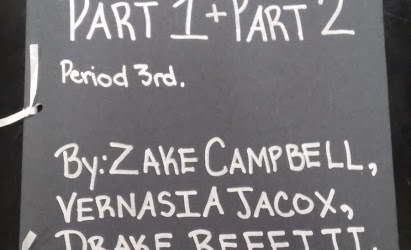 PART 1+PART 2
Period 3rd.
By: ZAKE CAMPBELL,
VERNASIA JACOX,
DRAKE